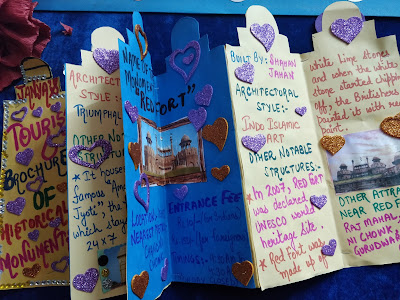 JANAV
TOURIS
BROCHURE
OF
HISTORICAL
MONUMENTS
ARCHITECT
STYLE:-
TRIUMPHAL
OTHER NOTA
STRU
* It house
famous "Am
Jyoti", the
which stay
24 x 7
NAME OF
MONUMENT
RED FORT"
LOCATION:-
NEAREST METRO
ENTRANCE FEE
TIMINGS:-
BUILT BY:- SHAHAN
JAHAN
ARCHITECTURAL
STYLE:-
INDO ISLAMIC
ART
OTHER NOTABLE
STRUCTURES:-
* In 2007, RED FORT
was declared
UNESCO world
heritage site.
* Red Fort was
made up of
white lime stones
and when the white
stone started chippin
off, the Britishers
painted it with red
Paint.
OTHER ATTRA
NEAR RED FO
RAJ MAHAL,
NI CHONK,
GURUDWAR